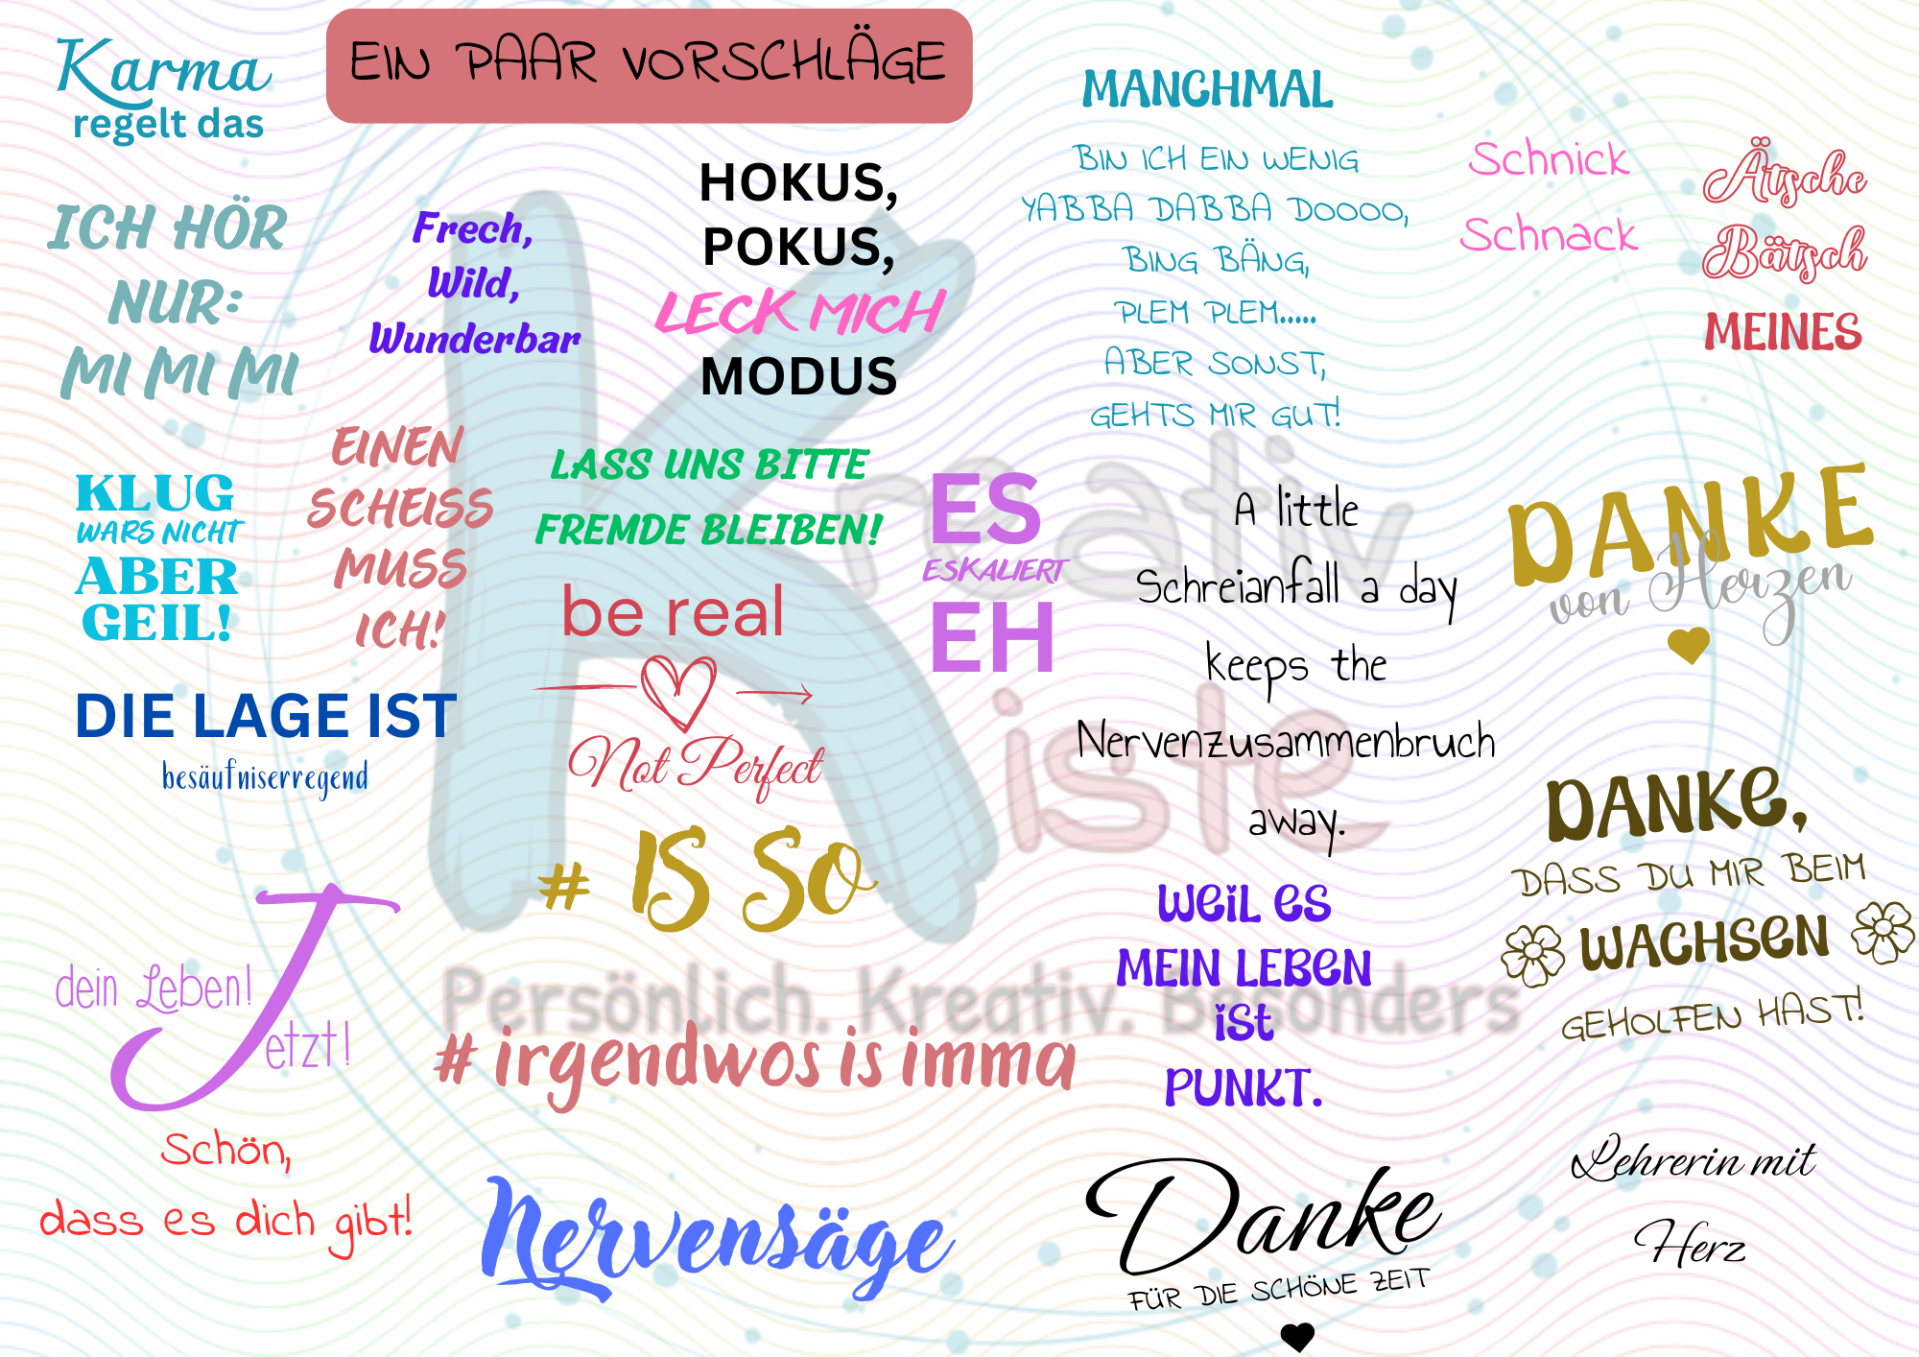 EIN PAAR VORSCHLÄGE
Karma
regelt das
ICH HÖR
NUR:
MI MI MI
Frech,
Wild,
Wunderbar
HOKUS,
POKUS,
LECK MICH
MODUS
MANCHMAL
BIN ICH EIN WENIG
YABBA DABBA DOOOO,
BING BÄNG,
PLEM PLEM.....
ABER SONST,
GEHTS MIR GUT!
Schnick
Schnack
Ätsche
Bätsch
MEINES
KLUG
WARS NICHT
ABER
GEIL!
EINEN
SCHEISS
MUSS
ICH!
LASS UNS BITTE
FREMDE BLEIBEN!
be real
Not Perfect
ES
ESKALIERT
EH
A little
Schreianfall a day
keeps the
Nervenzusammenbruch
away.
DANKE
von Herzen
DIE LAGE IST
besäufniserregend
# IS SO
DANKE,
DASS DU MIR BEIM
WACHSEN
GEHOLFEN HAST!
dein Leben!
Jetzt!
# irgendwos is imma
WEIL ES
MEIN LEBEN
IST
PUNKT.
Schön,
dass es dich gibt!
Nervensäge
Danke
FÜR DIE SCHÖNE ZEIT
Lehrerin mit
Herz
Kreativ
Kiste
Persönlich. Kreativ. Besonders